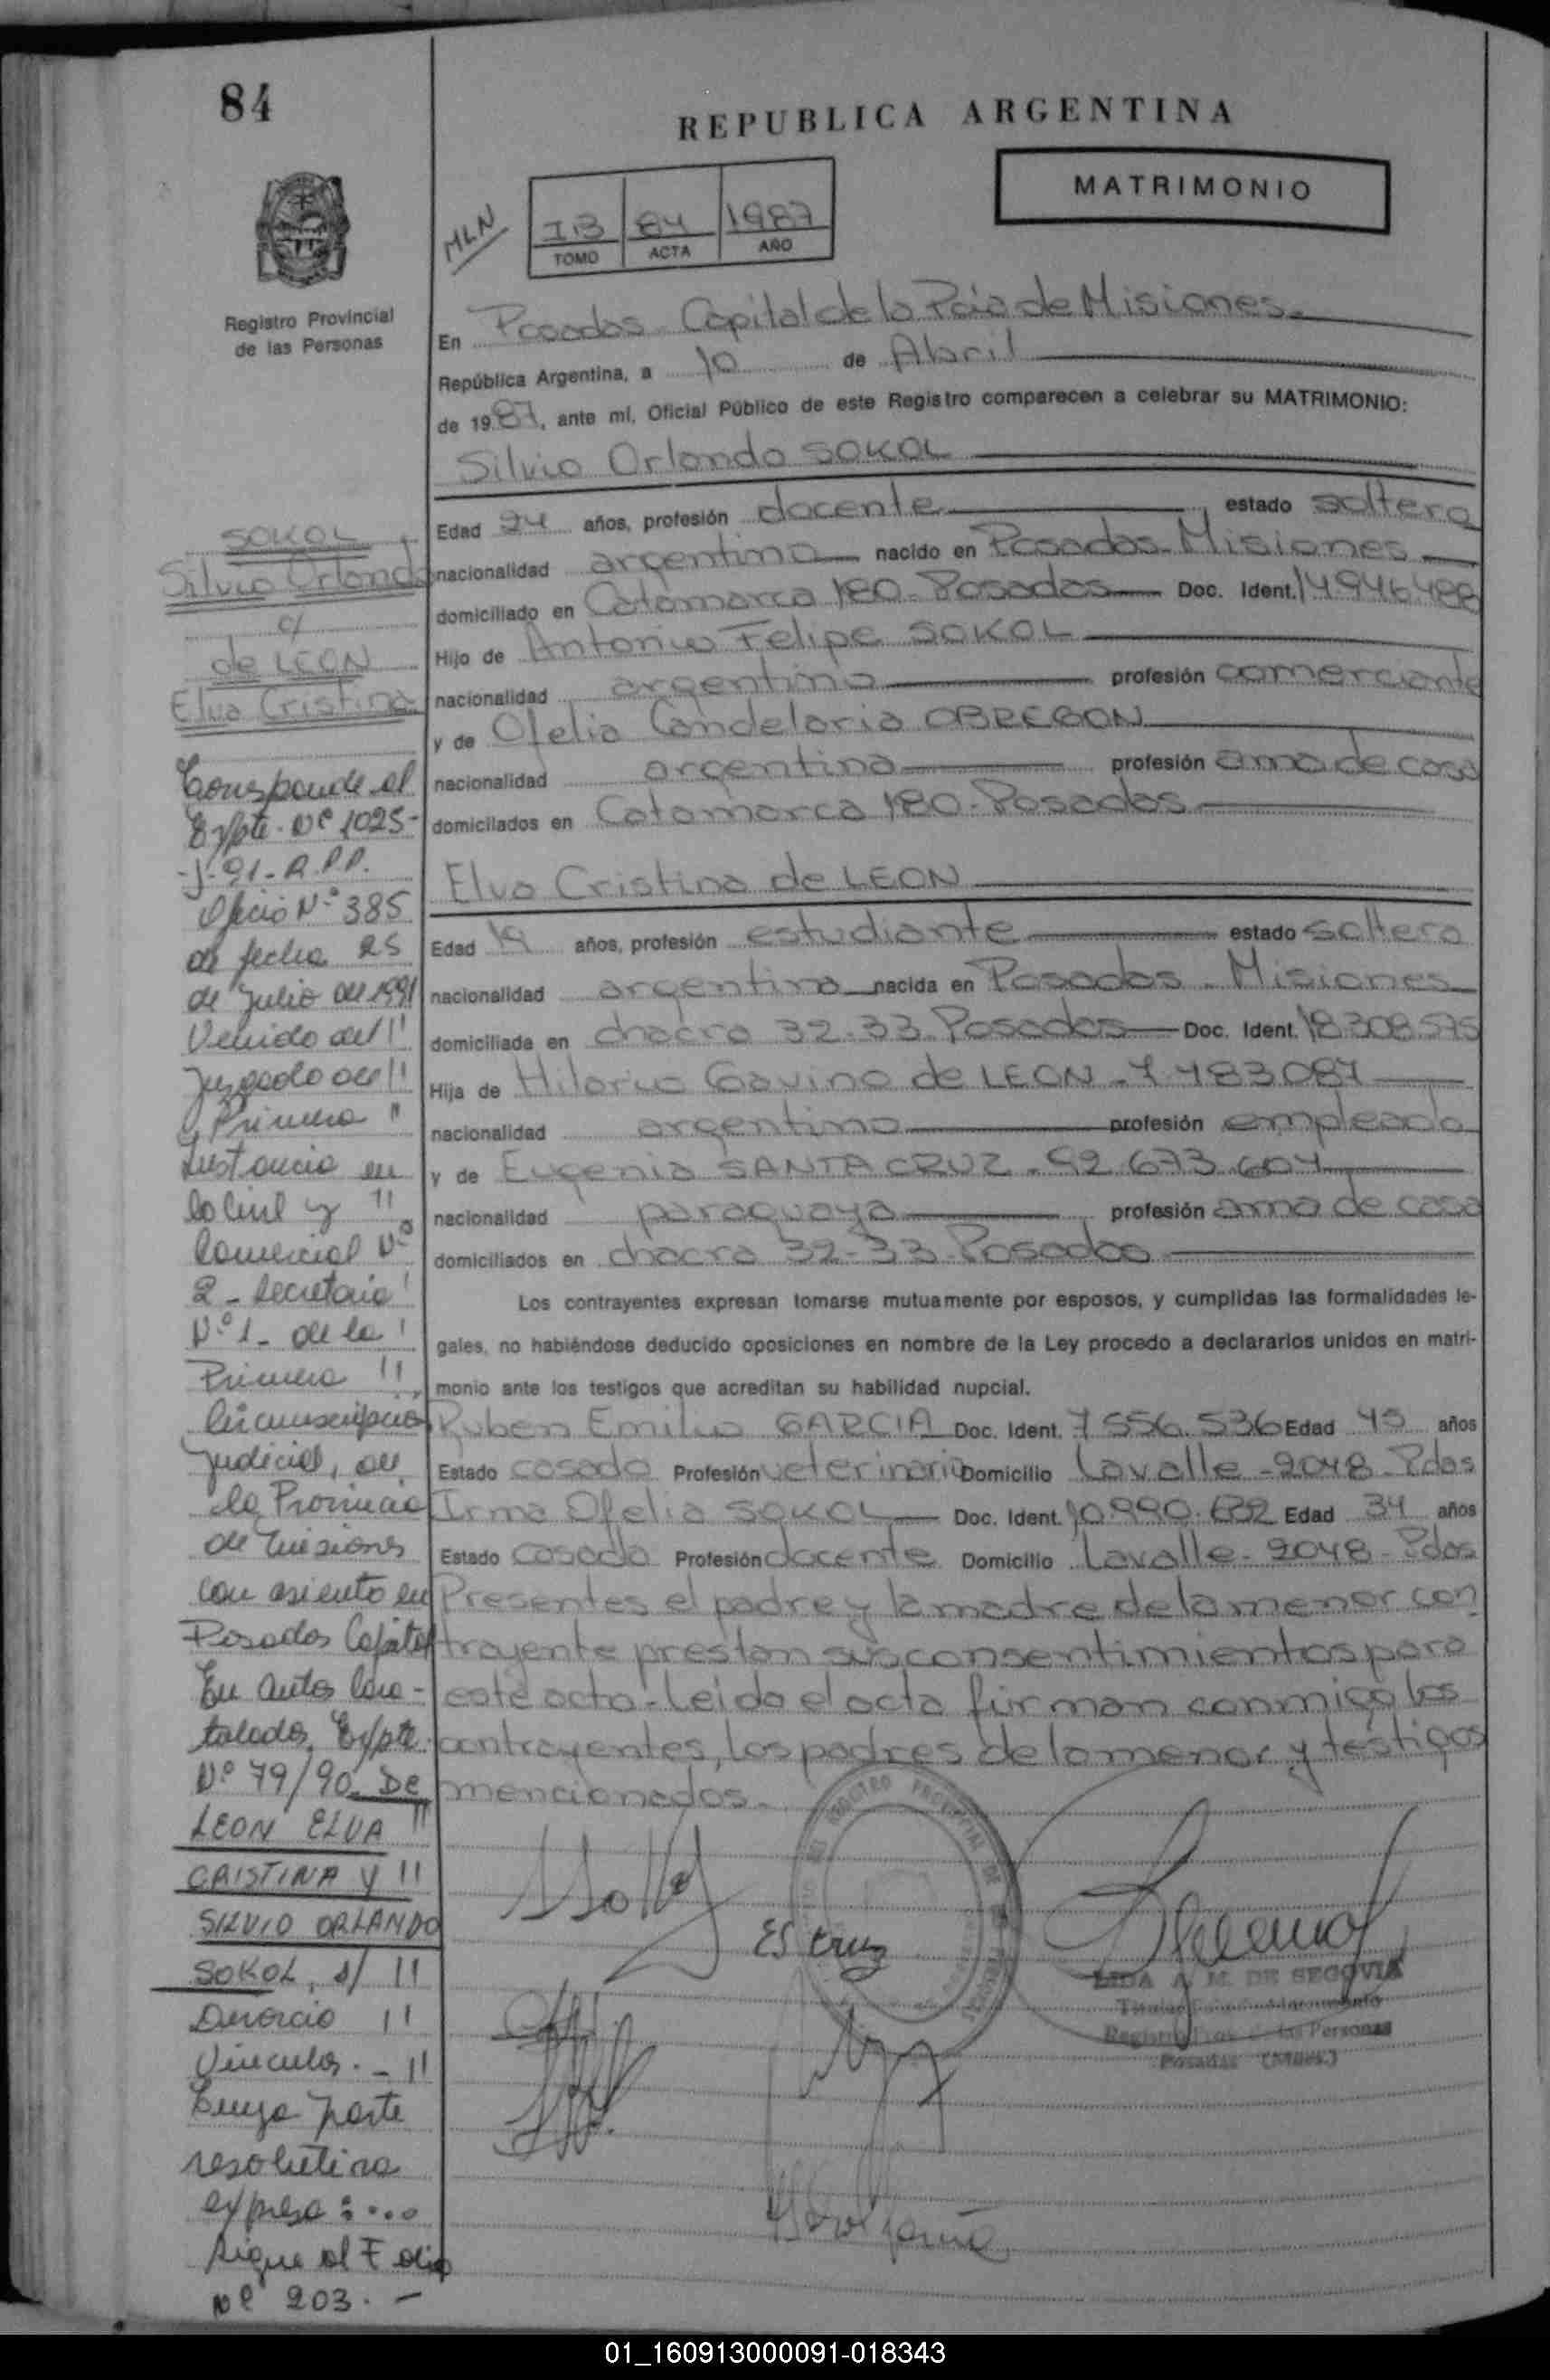 84
REPUBLICA ARGENTINA
MATRIMONIO
MLN
IB 84 1987
TOMO ACTA AÑO
Registro Provincial
de las Personas
En Posadas - Capital de la Pcia de Misiones.
República Argentina, a 10 de Abril
de 1987, ante mí, Oficial Público de este Registro comparecen a celebrar su MATRIMONIO:
Silvio Orlando SOKOL
Edad 24 años, profesión docente estado soltero
nacionalidad argentino nacido en Posadas - Misiones
domiciliado en Catamarca 180 - Posadas Doc. Ident. 14946488
Hijo de Antonio Felipe SOKOL
nacionalidad argentino profesión comerciante
y de Ofelia Candelaria OBREGON
nacionalidad argentina profesión ama de casa
domiciliados en Catamarca 180 - Posadas
Elva Cristina de LEON
Edad 19 años, profesión estudiante estado soltera
nacionalidad argentina nacida en Posadas - Misiones
domiciliada en chacra 32-33 - Posadas Doc. Ident. 18.308.575
Hija de Hilario Gavino de LEON - 7 483 087
nacionalidad argentino profesión empleado
y de Eugenia SANTA CRUZ - 92.673.604
nacionalidad paraguaya profesión ama de casa
domiciliados en chacra 32-33 - Posadas
Los contrayentes expresan tomarse mutuamente por esposos, y cumplidas las formalidades le-
gales, no habiéndose deducido oposiciones en nombre de la Ley procedo a declararlos unidos en matri-
monio ante los testigos que acreditan su habilidad nupcial.
Ruben Emilio GARCIA Doc. Ident. 7 556.536 Edad 45 años
Estado casado Profesión veterinario Domicilio Lavalle - 2048 - Pdas
Irma Ofelia SOKOL Doc. Ident. 10.990.632 Edad 34 años
Estado casada Profesión docente Domicilio Lavalle - 2048 - Pdas
Presentes el padre y la madre de la menor con
trayente prestan sus consentimientos para
este acto - Leida el acta firman conmigo los
contrayentes, los padres de la menor y testigos
mencionados.
ES Cruz
LIDA A. M. DE SEGOVIA
Registro Prov. de las Personas
Posadas (Mnes.)
SOKOL
Silvio Orlando
c/
de LEON
Elva Cristina
Corresponde al
Expte. Nº 1025-
-J-91- R.P.P.
Oficio Nº 385
de fecha 25
de Julio del 1991
Venido del "
Juzgado de "
Primera "
Instancia en
lo Civil y "
Comercial Nº
2 - Secretaria
Nº 1 - de la
Primera "
Circunscripción
Judicial, de
la Provincia
de Misiones
con asiento en
Posadas Capital
En autos Cara-
tulados, Expte.
Nº 79/90 De
LEON ELVA "
CRISTINA Y "
SILVIO ORLANDO
SOKOL, s/ "
Divorcio "
Vincular. - "
Cuya parte
resolutiva
expresa: ...
Sigue al Folio
Nº 203. -
01_160913000091-018343